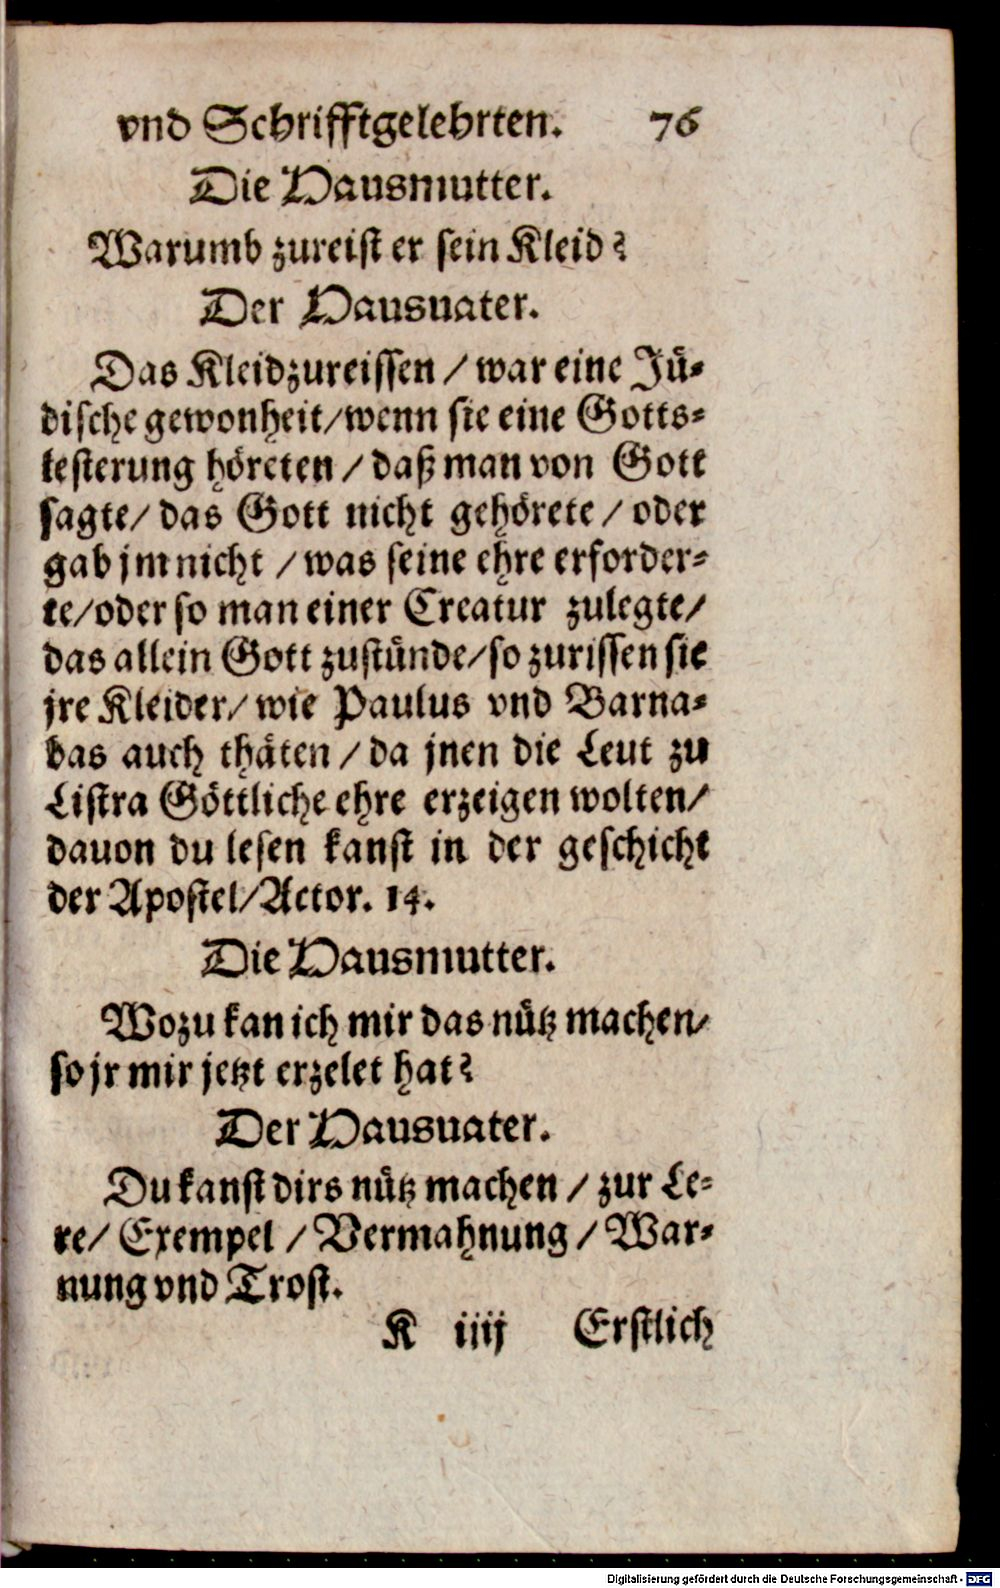 vnd Schrifftgelehrten. 76
Die Hausmutter.
Warumb zureist er sein Kleid?
Der Hausuater.
Das Kleid zureissen / war eine Jü-
dische gewonheit / wenn sie eine Gotts-
lesterung höreten / daß man von Gott
sagte / das Gott nicht gehörete / oder
gab jm nicht / was seine ehre erforder-
te / oder so man einer Creatur zulegte /
das allein Gott zustünde / so zurissen sie
jre Kleider / wie Paulus vnd Barna-
bas auch thäten / da jnen die Leut zu
Listra Göttliche ehre erzeigen wolten /
dauon du lesen kanst in der geschicht
der Apostel / Actor. 14.
Die Hausmutter.
Wozu kan ich mir das nütz machen /
so jr mir jetzt erzelet hat?
Der Hausuater.
Du kanst dirs nütz machen / zur Le-
re / Exempel / Vermahnung / War-
nung vnd Trost.
K iiij Erstlich
Digitalisierung gefördert durch die Deutsche Forschungsgemeinschaft - DFG